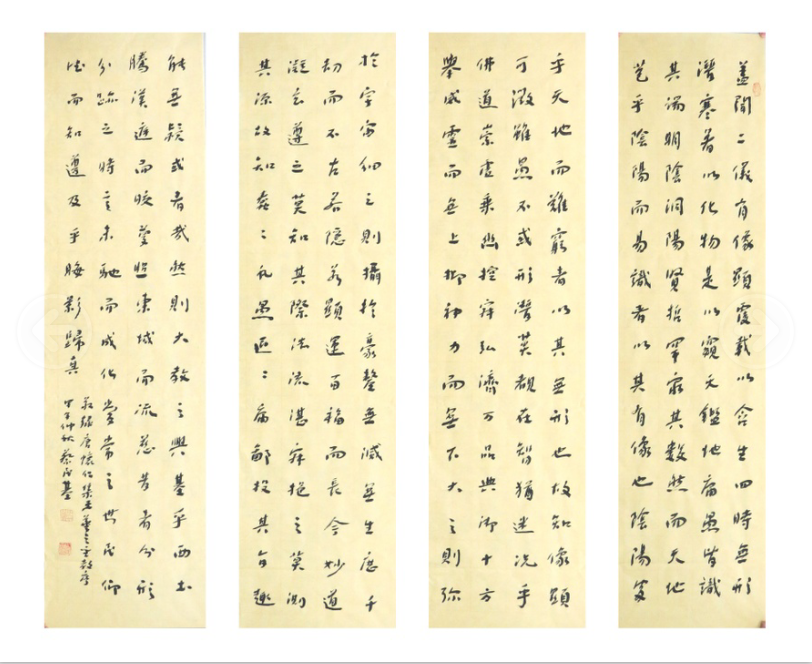 蓋聞二儀有像顯覆載以含生四時無形
潛寒暑以化物是以窺天鑑地庸愚皆識
其端明陰洞陽賢哲罕窮其數然而天地
苞乎陰陽而易識者以其有像也陰陽處
乎天地而難窮者以其無形也故知像顯
可徵雖愚不惑形潛莫覩在智猶迷況乎
佛道崇虛乘幽控寂弘濟万品典御十方
舉威靈而無上抑神力而無下大之則彌
於宇宙細之則攝於豪釐無滅無生歷千
劫而不古若隱若顯運百福而長今妙道
凝玄遵之莫知其際法流湛寂挹之莫測
其源故知蠢〻凡愚區〻庸鄙投其旨趣
能無疑或者哉然則大教之興基乎西土
騰漢庭而皎夢照東域而流慈昔者分形
分跡之時言未馳而成化當常之世民仰
德而知遵及乎晦影歸真
唐懷仁集王羲之聖教序
仲秋蔡